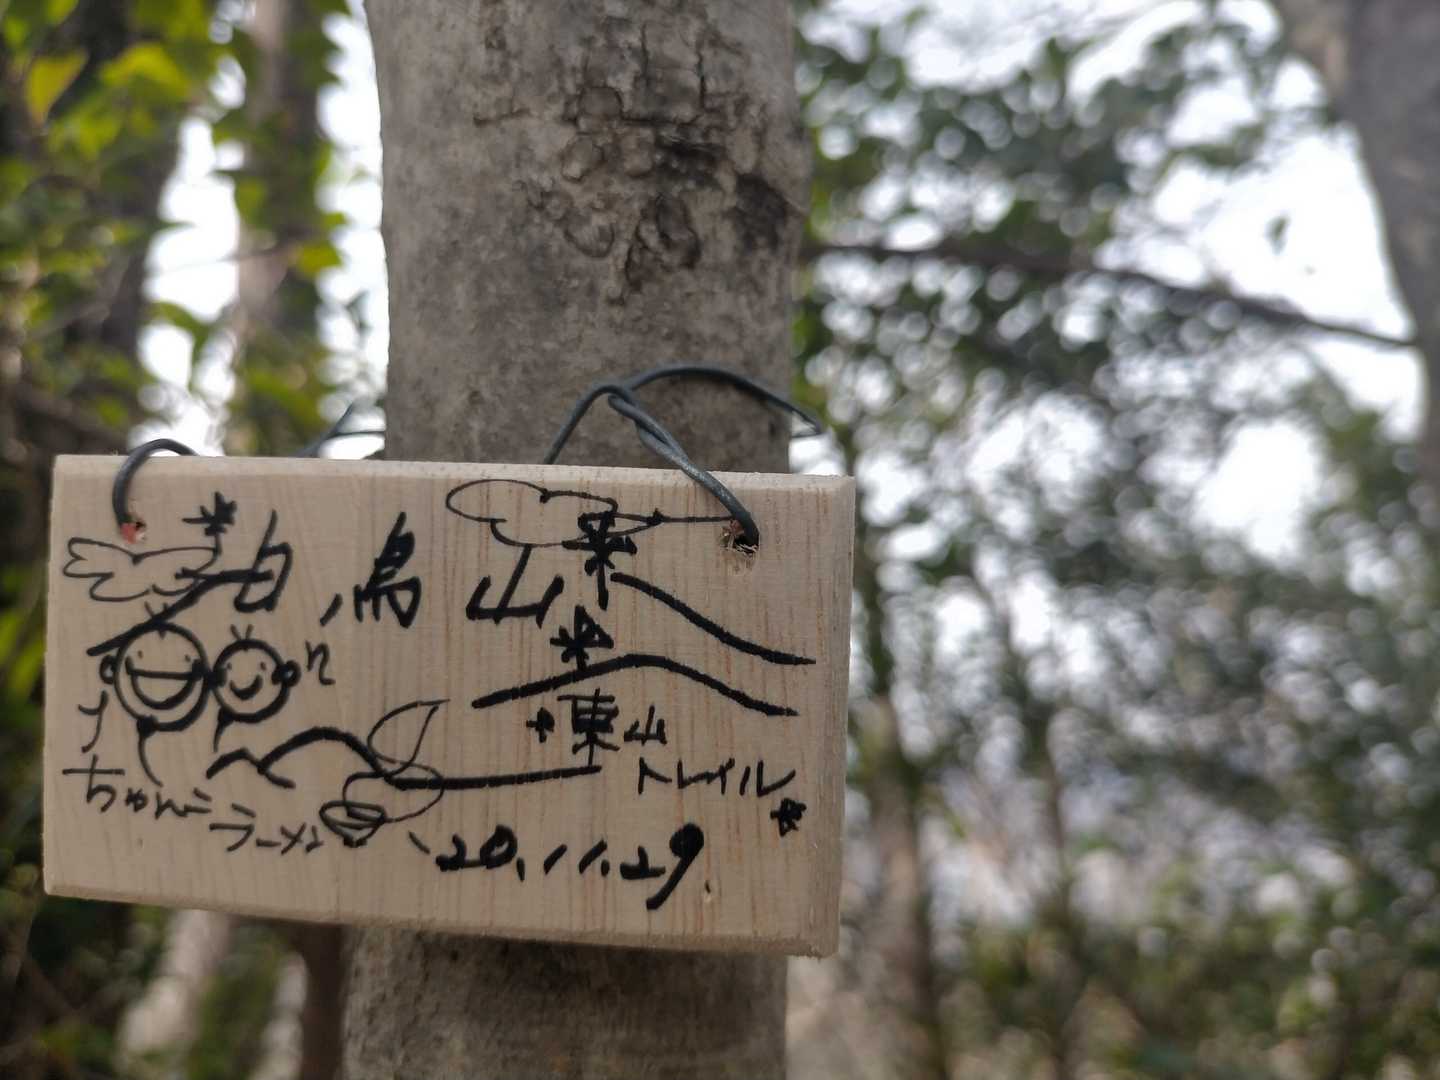 白鳥山
東山
トレイル
ちゃんこ
ラーメン
'20.11.29.